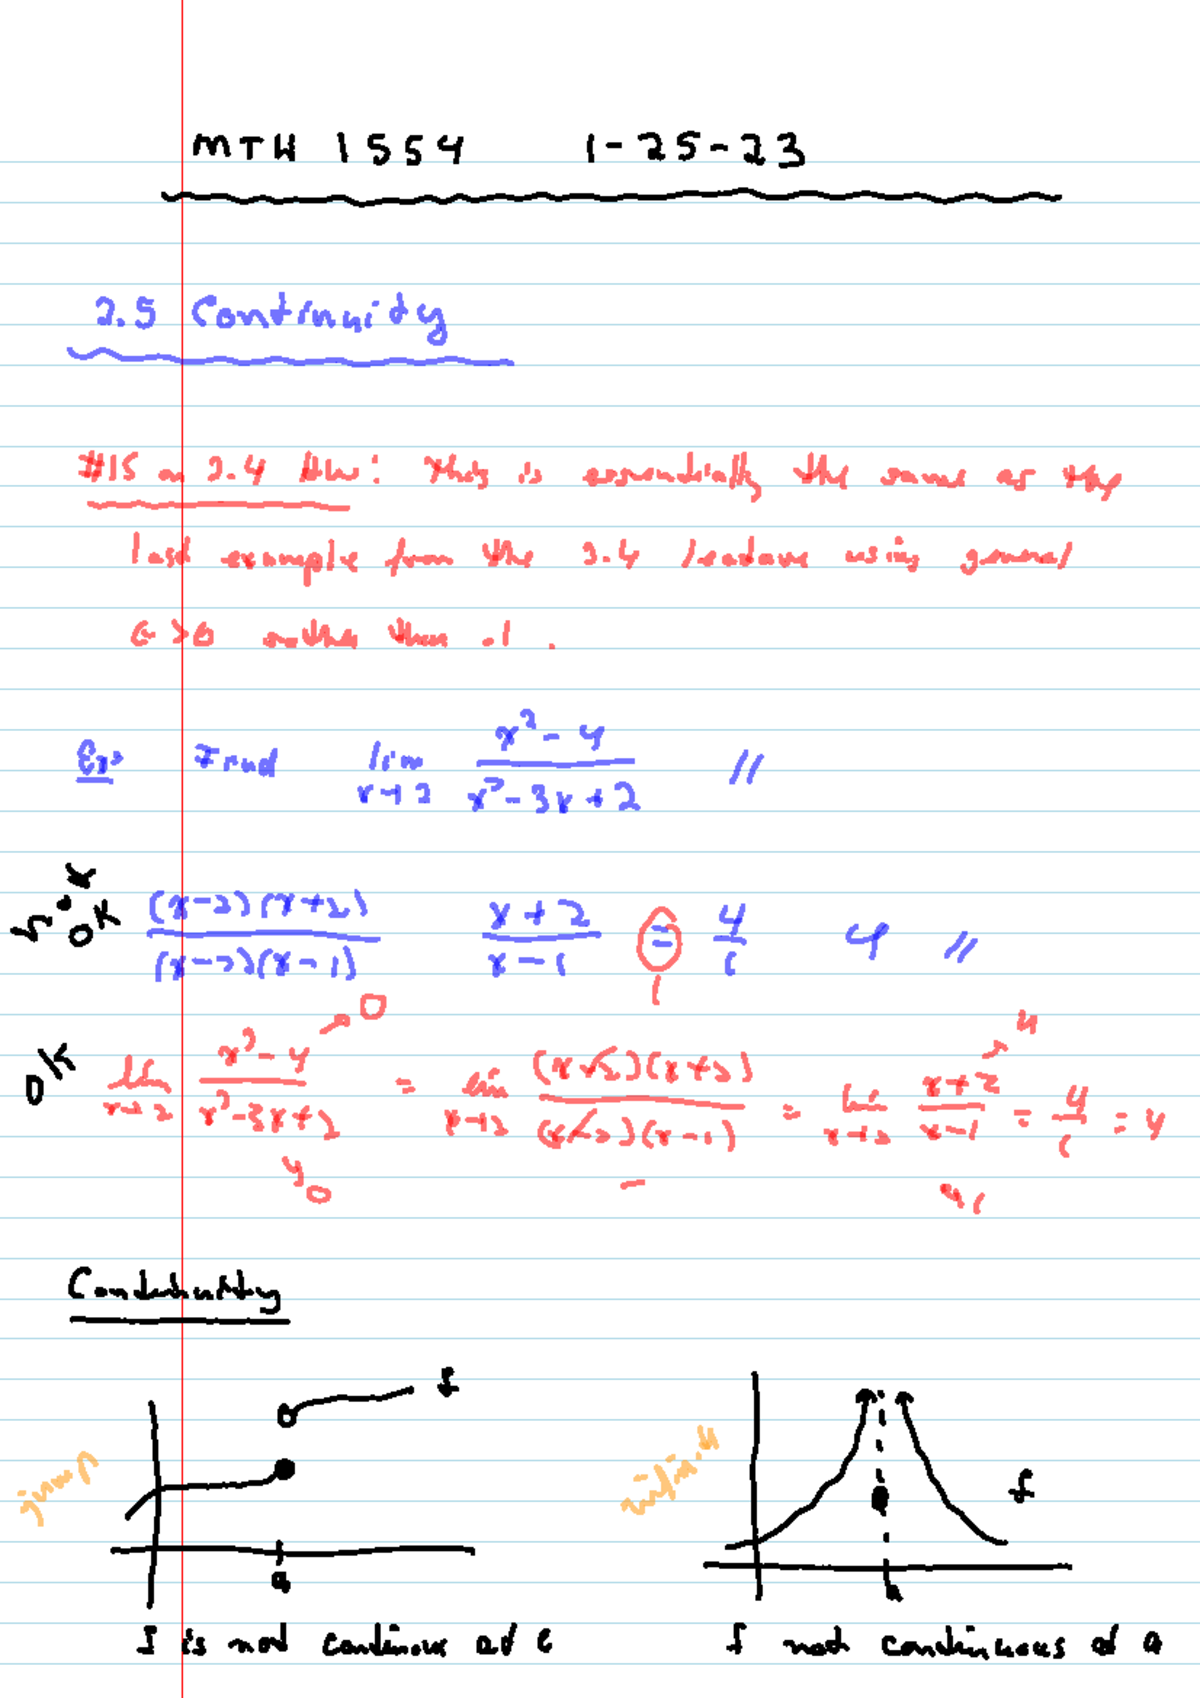 MTH 1554 1-25-23
2.5 Continuity
#15 on 2.4 HW: This is essentially the same as the
last example from the 2.4 lecture using general
ε > 0 rather than .1 .
Ex: Find lim x→2 (x² - 4)/(x² - 3x + 2) //
not OK (x-2)(x+2)/(x-2)(x-1) (x+2)/(x-1) = 4/1 4 //
1
OK lim x→2 (x² - 4)/(x² - 3x + 2) = lim x→2 (x-2)(x+2)/(x-2)(x-1) = lim x→2 (x+2)/(x-1) = 4/1 = 4
→ 0 → 0 → 4 → 1
Continuity
jump f a
infinite f a
f is not continuous at a
f not continuous at a